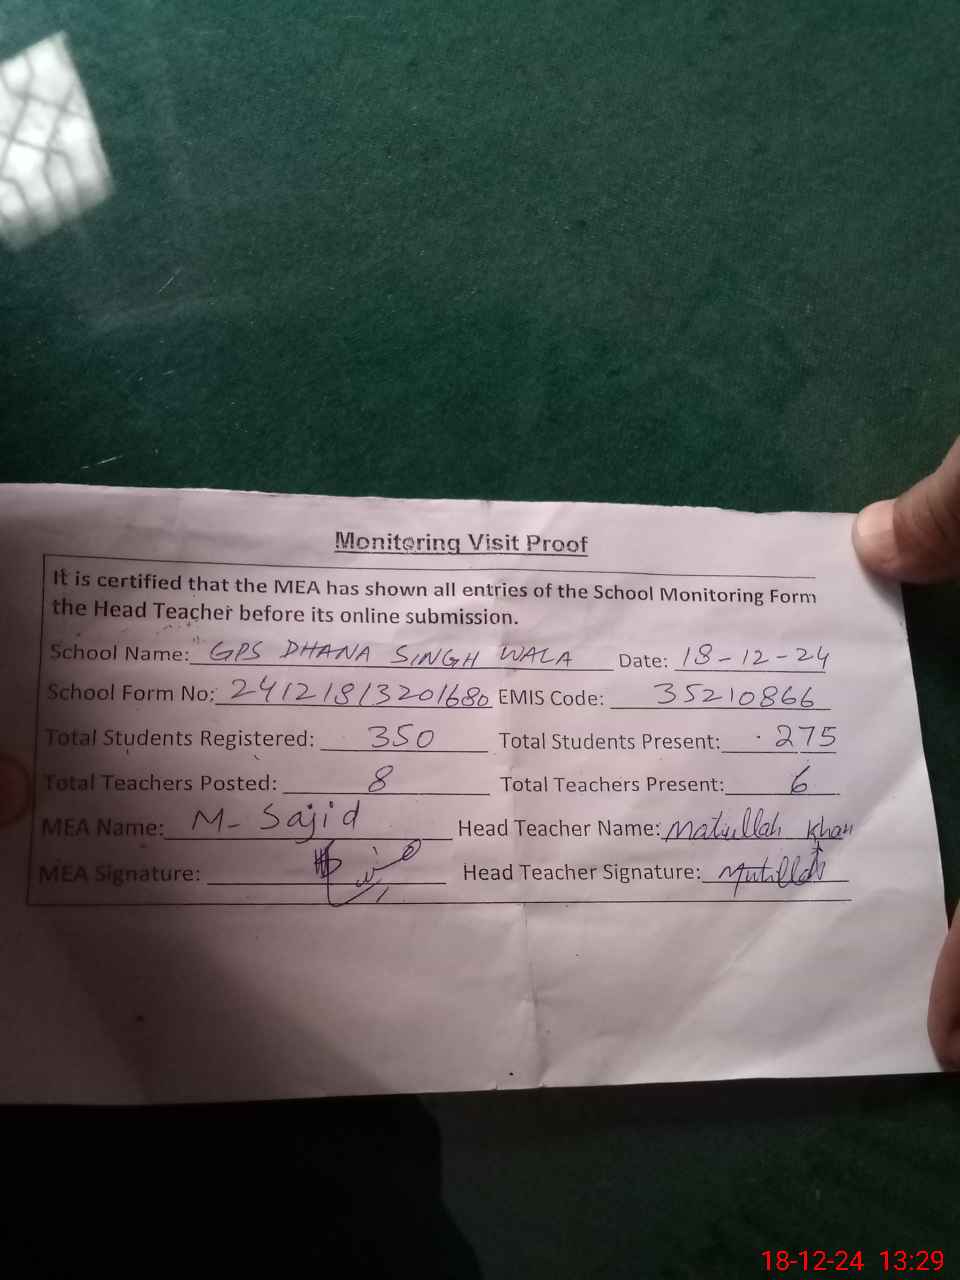 Monitoring Visit Proof
It is certified that the MEA has shown all entries of the School Monitoring Form
the Head Teacher before its online submission.
School Name: GPS DHANA SINGH WALA Date: 18-12-24
School Form No: 24121813201680 EMIS Code: 35210866
Total Students Registered: 350 Total Students Present: 275
Total Teachers Posted: 8 Total Teachers Present: 6
MEA Name: M- Sajid Head Teacher Name: Matiullah Khan
MEA Signature: Head Teacher Signature:
18-12-24 13:29